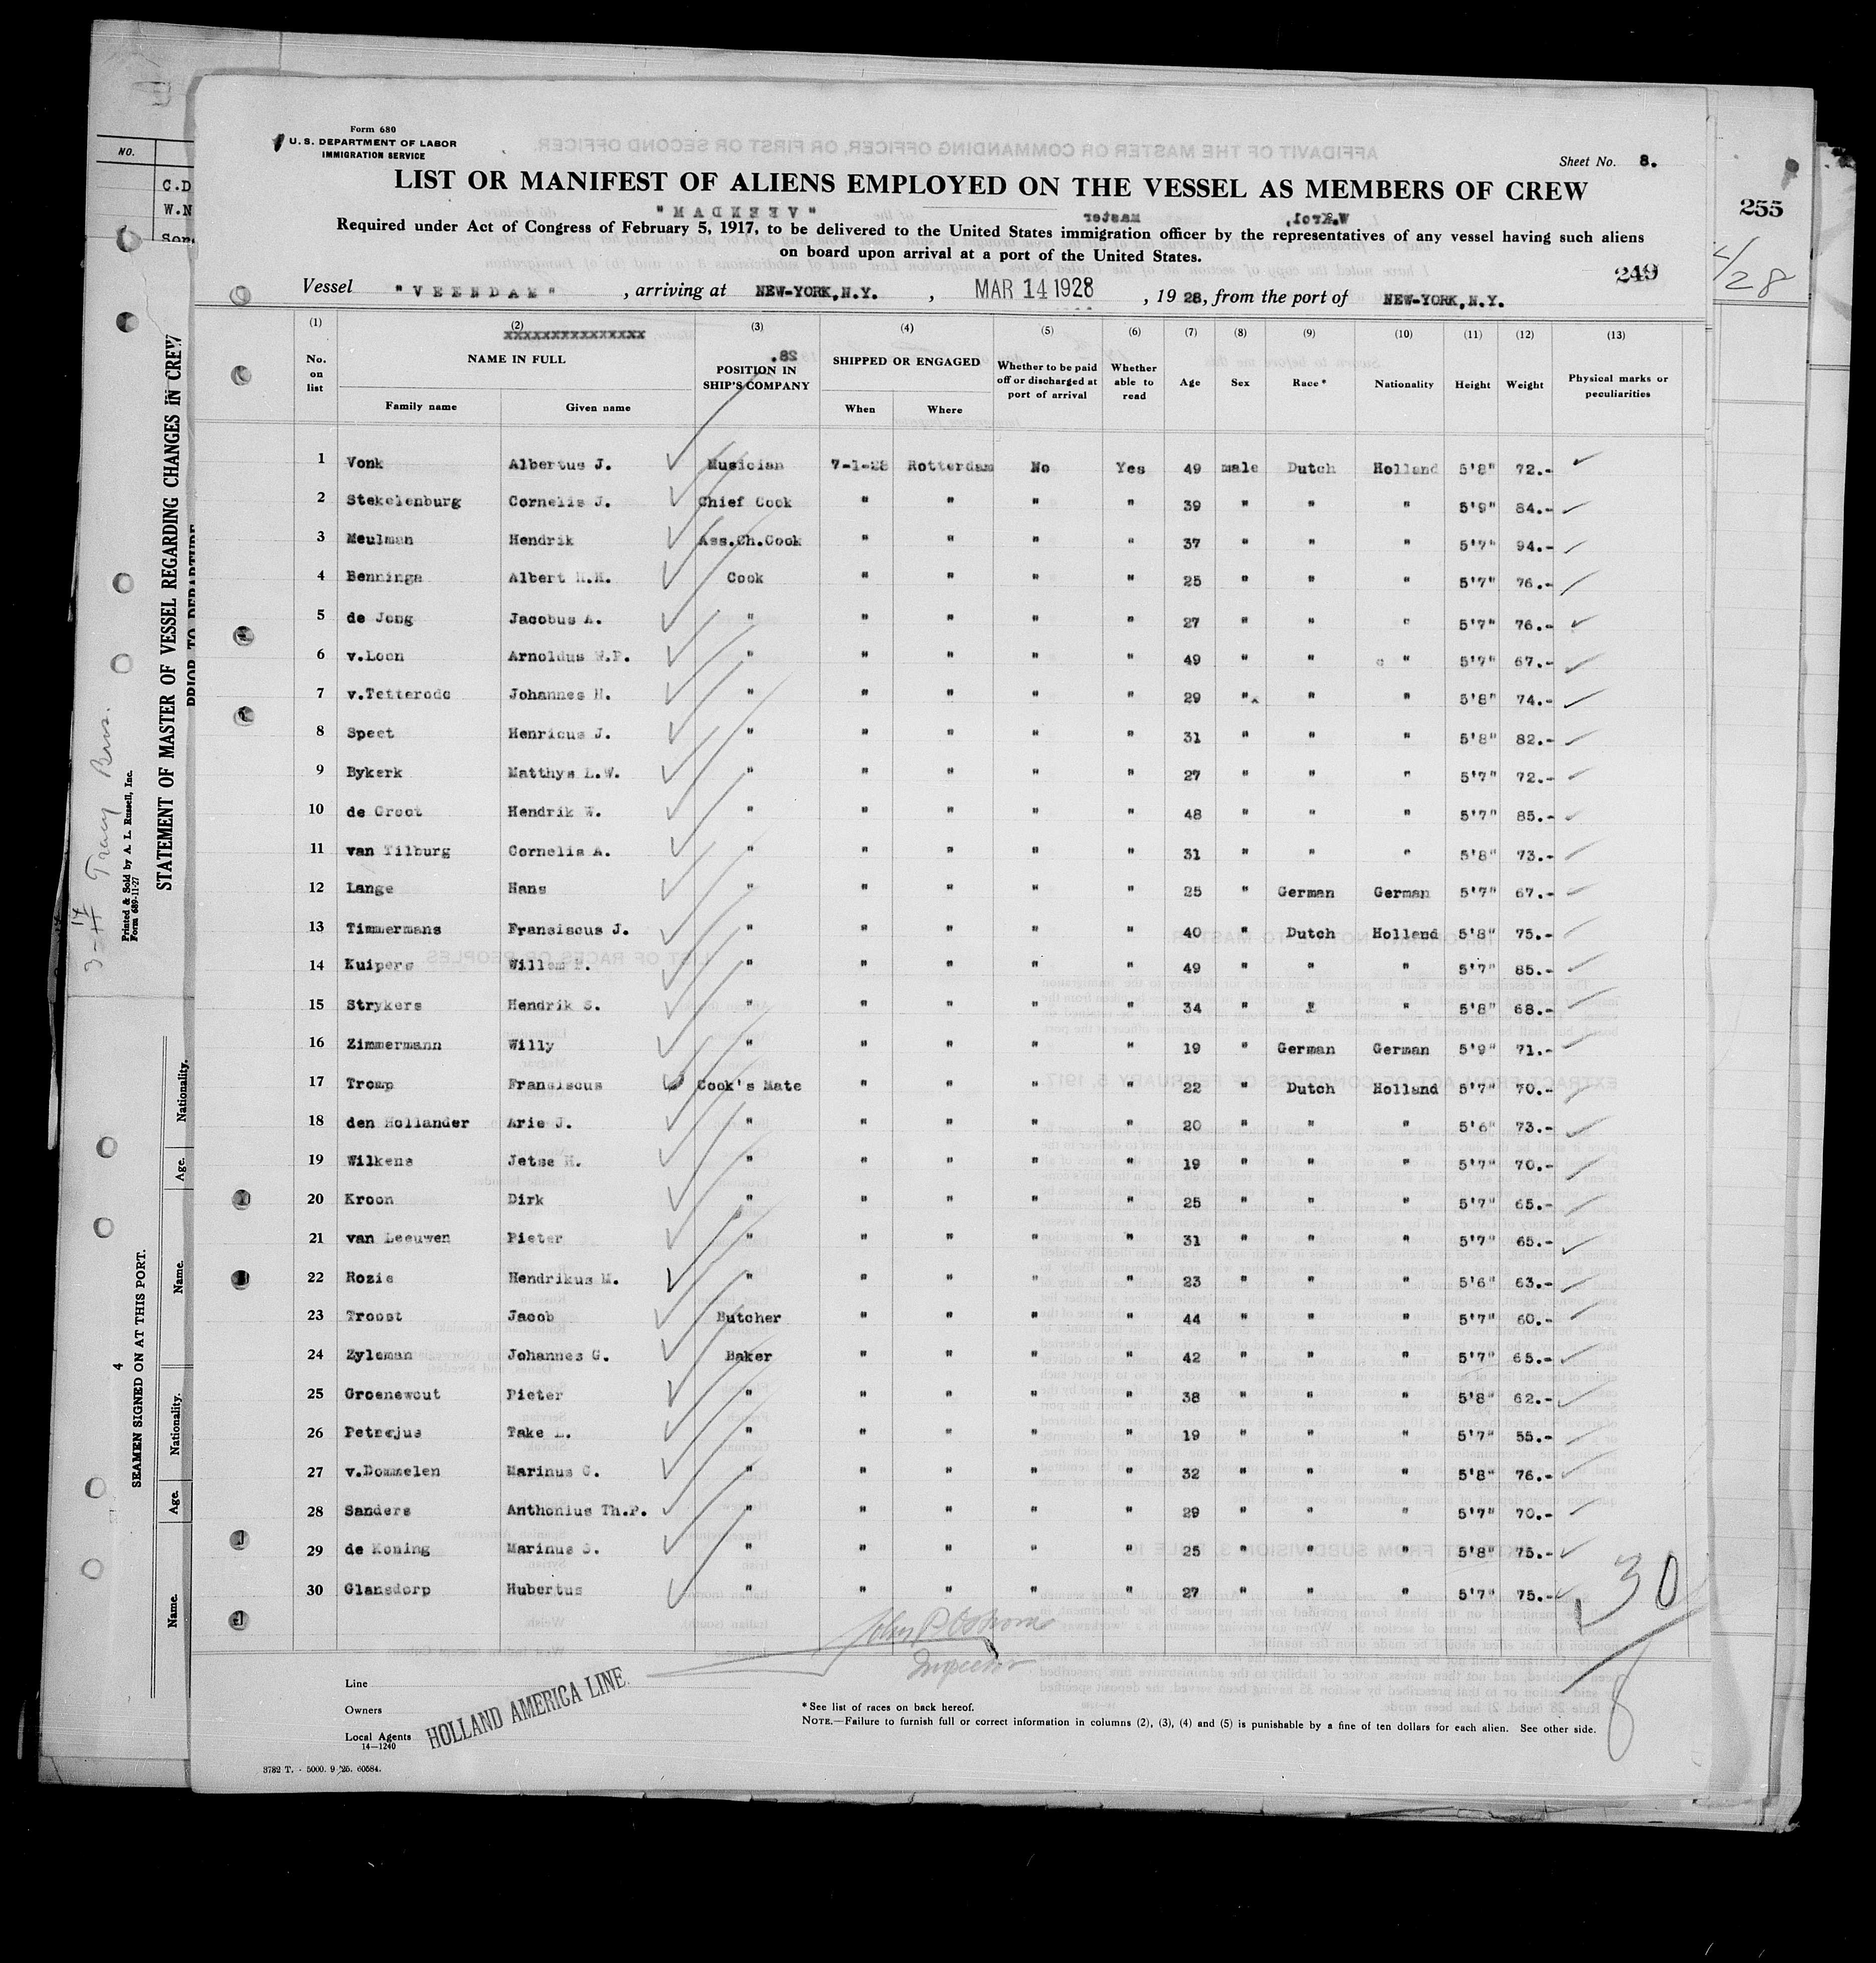 Form 680
U. S. DEPARTMENT OF LABOR
IMMIGRATION SERVICE
Sheet No. 8.
LIST OR MANIFEST OF ALIENS EMPLOYED ON THE VESSEL AS MEMBERS OF CREW
Required under Act of Congress of February 5, 1917, to be delivered to the United States immigration officer by the representatives of any vessel having such aliens
on board upon arrival at a port of the United States.
255
249
4/28
Vessel "VEENDAM", arriving at NEW-YORK,N.Y., MAR 14 1928, 1928, from the port of NEW-YORK,N.Y.
(1) (2) (3) (4) (5) (6) (7) (8) (9) (10) (11) (12) (13)
No. on list NAME IN FULL POSITION IN SHIP'S COMPANY SHIPPED OR ENGAGED Whether to be paid off or discharged at port of arrival Whether able to read Age Sex Race* Nationality Height Weight Physical marks or peculiarities
Family name Given name When Where
1 Vonk Albertus J. Musician 7-1-28 Rotterdam No Yes 49 male Dutch Holland 5'8" 72.-
2 Stekelenburg Cornelis J. Chief Cook " " " " 39 " " " 5'9" 84.-
3 Meulman Hendrik Ass.Ch.Cook " " " " 37 " " " 5'7" 94.-
4 Benninga Albert H.H. Cook " " " " 25 " " " 5'7" 76.-
5 de Jong Jacobus A. " " " " " 27 " " " 5'7" 76.-
6 v.Loon Arnoldus W.P. " " " " " 49 " " " 5'7" 67.-
7 v.Tetterode Johannes H. " " " " " 29 " " " 5'8" 74.-
8 Speet Henricus J. " " " " " 31 " " " 5'8" 82.-
9 Bykerk Matthys L.W. " " " " " 27 " " " 5'7" 72.-
10 de Groot Hendrik W. " " " " " 48 " " " 5'7" 85.-
11 van Tilburg Cornelis A. " " " " " 31 " " " 5'8" 73.-
12 Lange Hans " " " " " 25 " German German 5'7" 67.-
13 Timmermans Fransiscus J. " " " " " 40 " Dutch Holland 5'8" 75.-
14 Kuipers Willem " " " " " 49 " " " 5'7" 85.-
15 Strykers Hendrik S. " " " " " 34 " " " 5'8" 68.-
16 Zimmermann Willy " " " " " 19 " German German 5'9" 71.-
17 Tromp Fransiscus Cook's Mate " " " " 22 " Dutch Holland 5'7" 70.-
18 den Hollander Arie J. " " " " " 20 " " " 5'6" 73.-
19 Wilkens Jetse H. " " " " " 19 " " " 5'7" 70.-
20 Kroon Dirk " " " " " 25 " " " 5'7" 65.-
21 van Leeuwen Pieter " " " " " 31 " " " 5'7" 65.-
22 Rozie Hendrikus M. " " " " " 23 " " " 5'6" 63.-
23 Troost Jacob Butcher " " " " 44 " " " 5'7" 60.-
24 Zyleman Johannes G. Baker " " " " 42 " " " 5'7" 65.-
25 Groenewout Pieter " " " " " 38 " " " 5'8" 62.-
26 Petrejus Take L. " " " " " 19 " " " 5'7" 55.-
27 v.Dommelen Marinus C. " " " " " 32 " " " 5'8" 76.-
28 Sanders Anthonius Th.P. " " " " " 29 " " " 5'7" 70.-
29 de Koning Marinus S. " " " " " 25 " " " 5'8" 75.-
30 Glansdorp Hubertus " " " " " 27 " " " 5'7" 75.-
30
8
John P. Osborne
Inspector
Line
Owners
Local Agents
HOLLAND AMERICA LINE
14—1240
*See list of races on back hereof.
NOTE.—Failure to furnish full or correct information in columns (2), (3), (4) and (5) is punishable by a fine of ten dollars for each alien. See other side.
3782 T. - 5000. 9/25. 60584.
NO.
C.D
W.N
STATEMENT OF MASTER OF VESSEL REGARDING CHANGES IN CREW
PRIOR TO DEPARTURE
Tracy Bros.
Printed & Sold by A. L. Russell, Inc.
Form 689-11-27
4
SEAMEN SIGNED ON AT THIS PORT.
Name. Age. Nationality. Name. Age. Nationality.